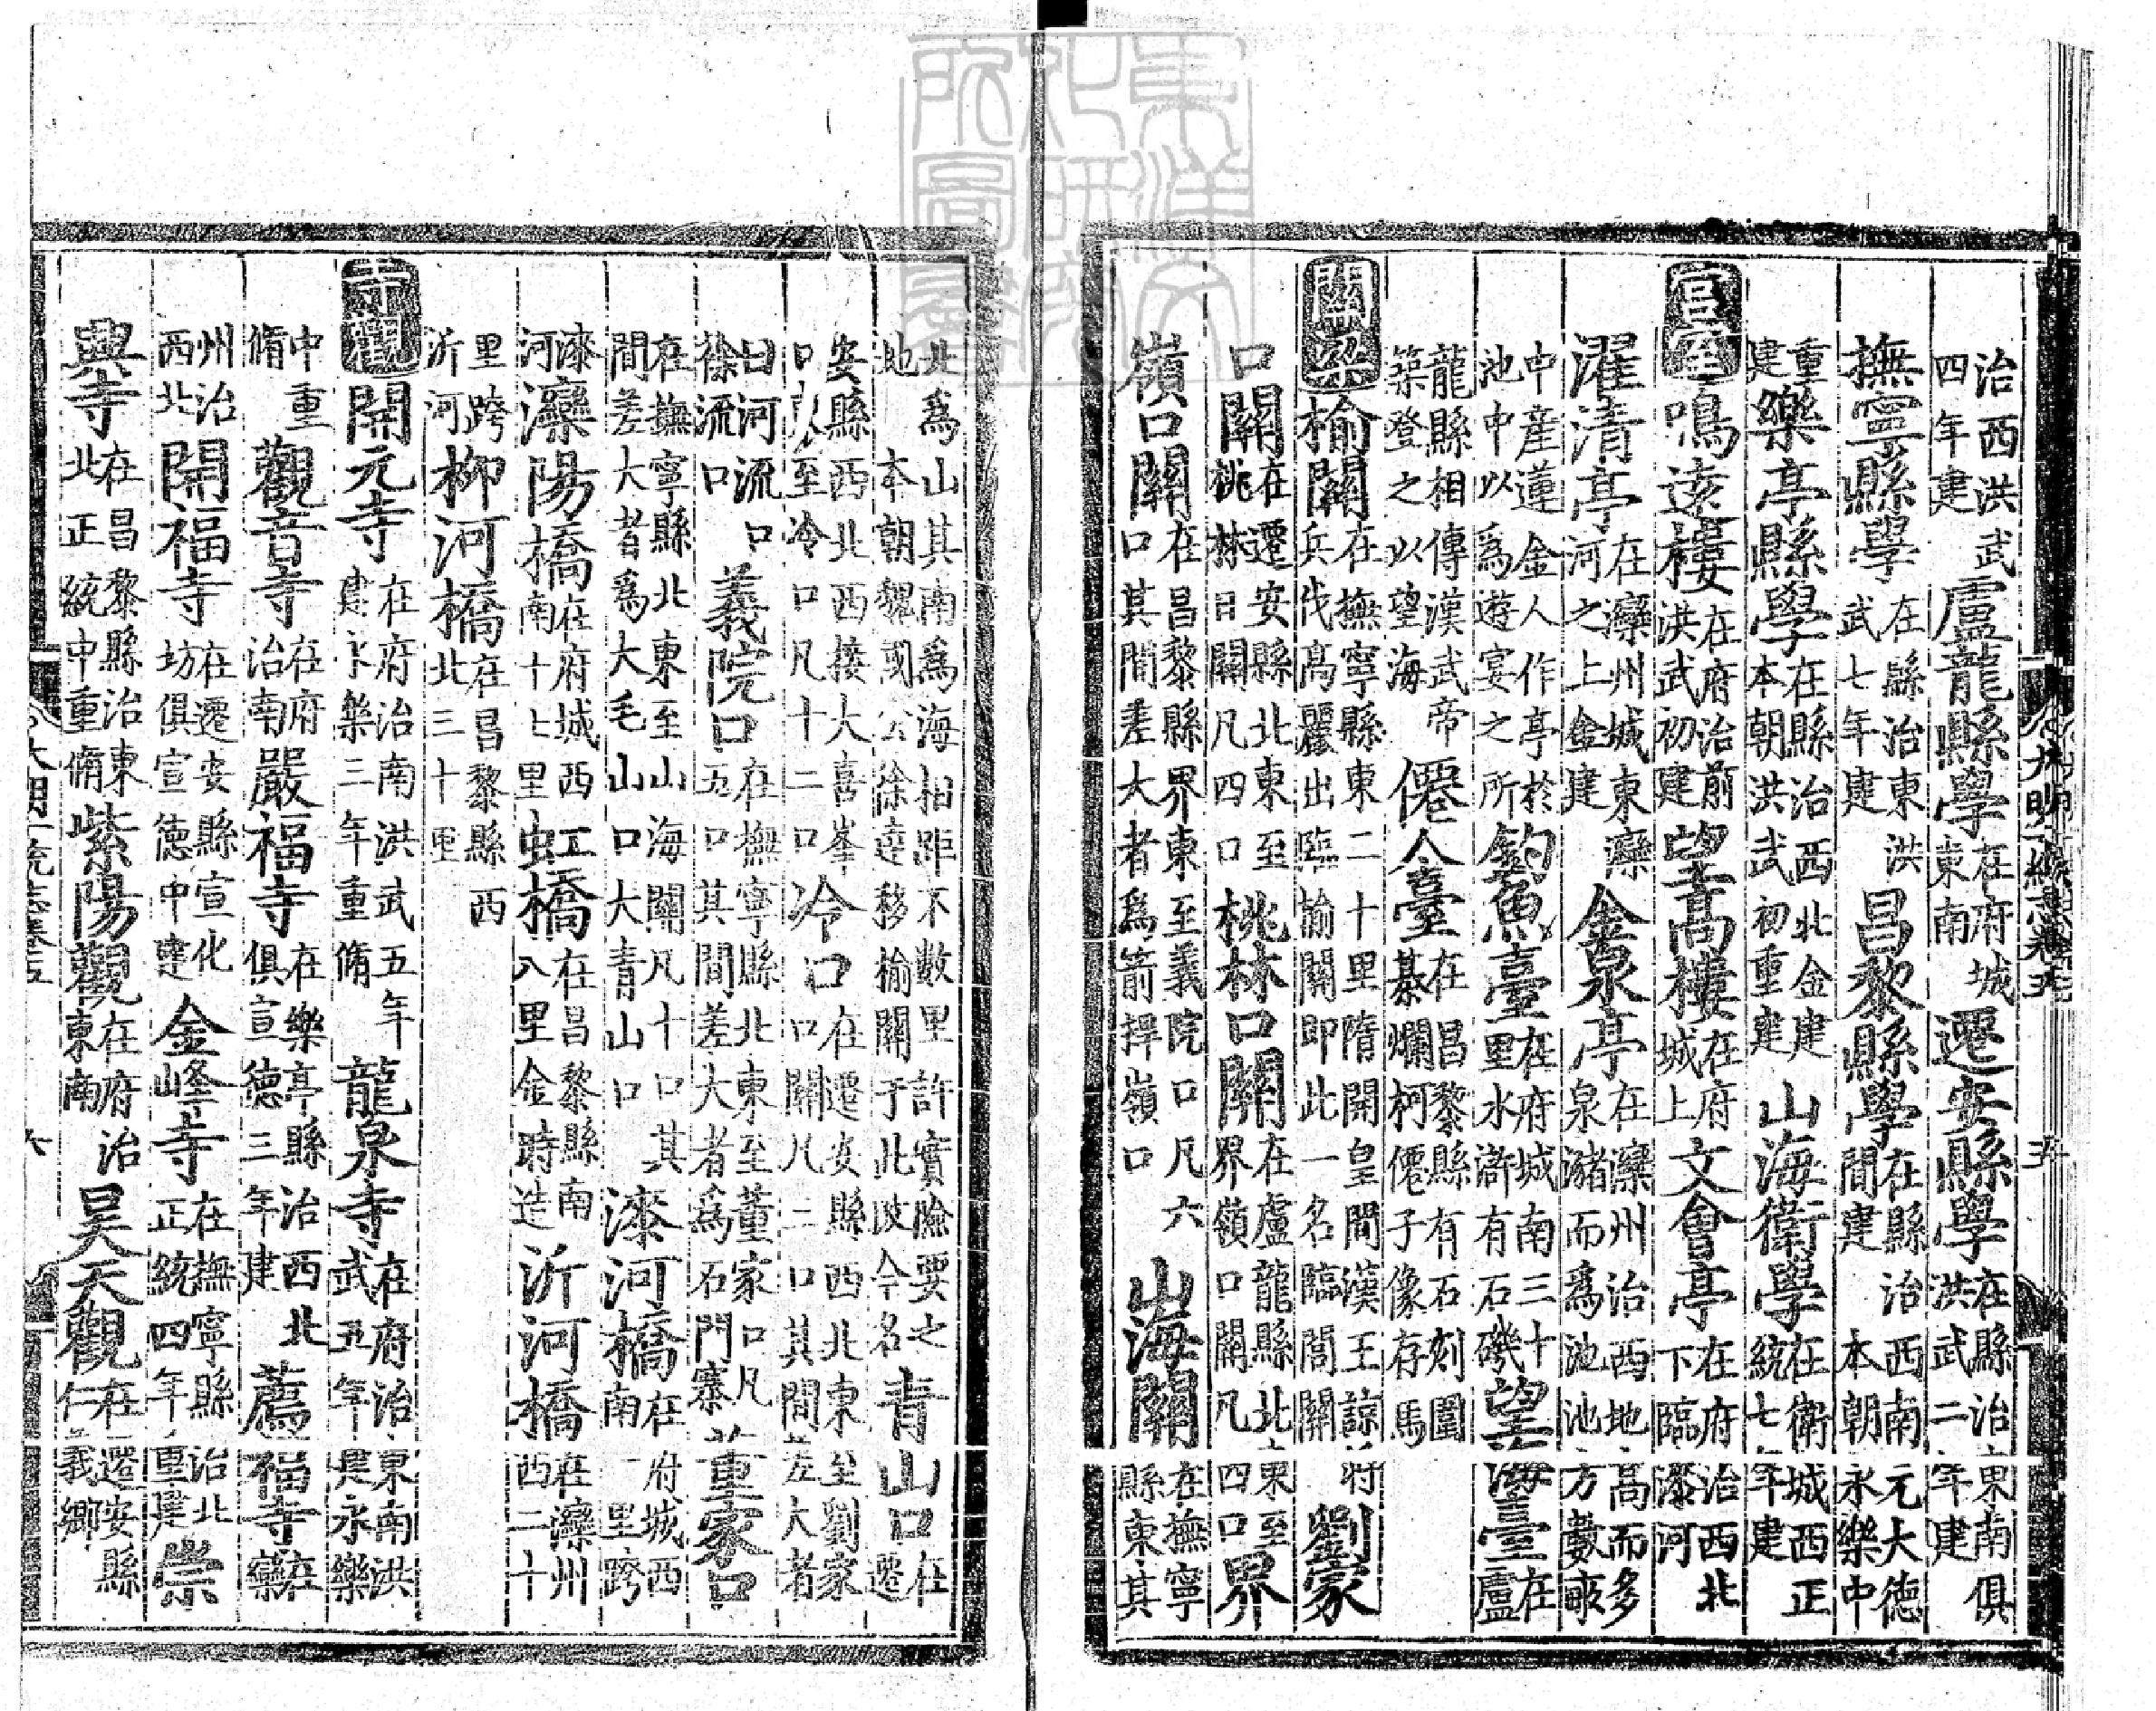 大明一統志卷五 五
治西洪武四年建盧龍縣學在府城東南遷安縣學在縣治東南俱洪武二年建
撫寧縣學在縣治東洪武七年建昌黎縣學在縣治西南元大德間建本朝永樂中
重建樂亭縣學在縣治西北金建本朝洪武初重建山海衛學在衛城西正統七年建
宮室鳴遠樓在府治前洪武初建望高樓在府城上文會亭在府治西北下臨漆河
濯清亭在灤州城東灤河之上金建金泉亭在灤州治西地高而多泉瀦而爲池池方數畝
中産蓮金人作亭於池中以爲遊宴之所釣魚臺在府城南三十里水滸有石磯望海臺在盧
龍縣相傳漢武帝築登之以望海僊人臺在昌黎縣有石刻圍棊爛柯僊子像存焉
關梁榆關在撫寧縣東二十里隋開皇間漢王諒將兵伐髙麗出臨榆關即此一名臨閭關劉家
口關在遷安縣北東至桃林口關凡四口桃林口關在盧龍縣北東至界嶺口關凡四口界
嶺口關在昌黎縣界東至義院口凡六口其間差大者爲箭捍嶺口山海關在撫寧縣東其
北爲山其南爲海相距不數里許實險要之地本朝魏國公徐達移榆關于此改今名青山口在遷
安縣西北西接大喜峯口東至冷口凡十二口冷口在遷安縣西北東至劉家口關凡三口其間差大者
曰河流口徐流口義院口在撫寧縣北東至董家口凡五口其間差大者爲石門寨董家口
在撫寧縣北東至山海關凡十口其間差大者爲大毛山口大青山口漆河橋在府城西南一里跨
漆河灤陽橋在府城西南十七里虹橋在昌黎縣南八里金時造沂河橋在灤州西二十
里跨沂河柳河橋在昌黎縣西北三十里
寺觀開元寺在府治南洪武五年建永樂三年重脩龍泉寺在府治東南洪武五年建永樂
中重脩觀音寺在府治南嚴福寺在樂亭縣治西北俱宣德三年建薦福寺在灤
州治西北開福寺在遷安縣宣化坊俱宣德中建金峰寺在撫寧縣治北正統四年重建崇
興寺在昌黎縣治東北正統中重脩紫陽觀在府治東南昊天觀在遷安縣仁義鄉
大明一統志卷五 六
東洋文化研究所圖書